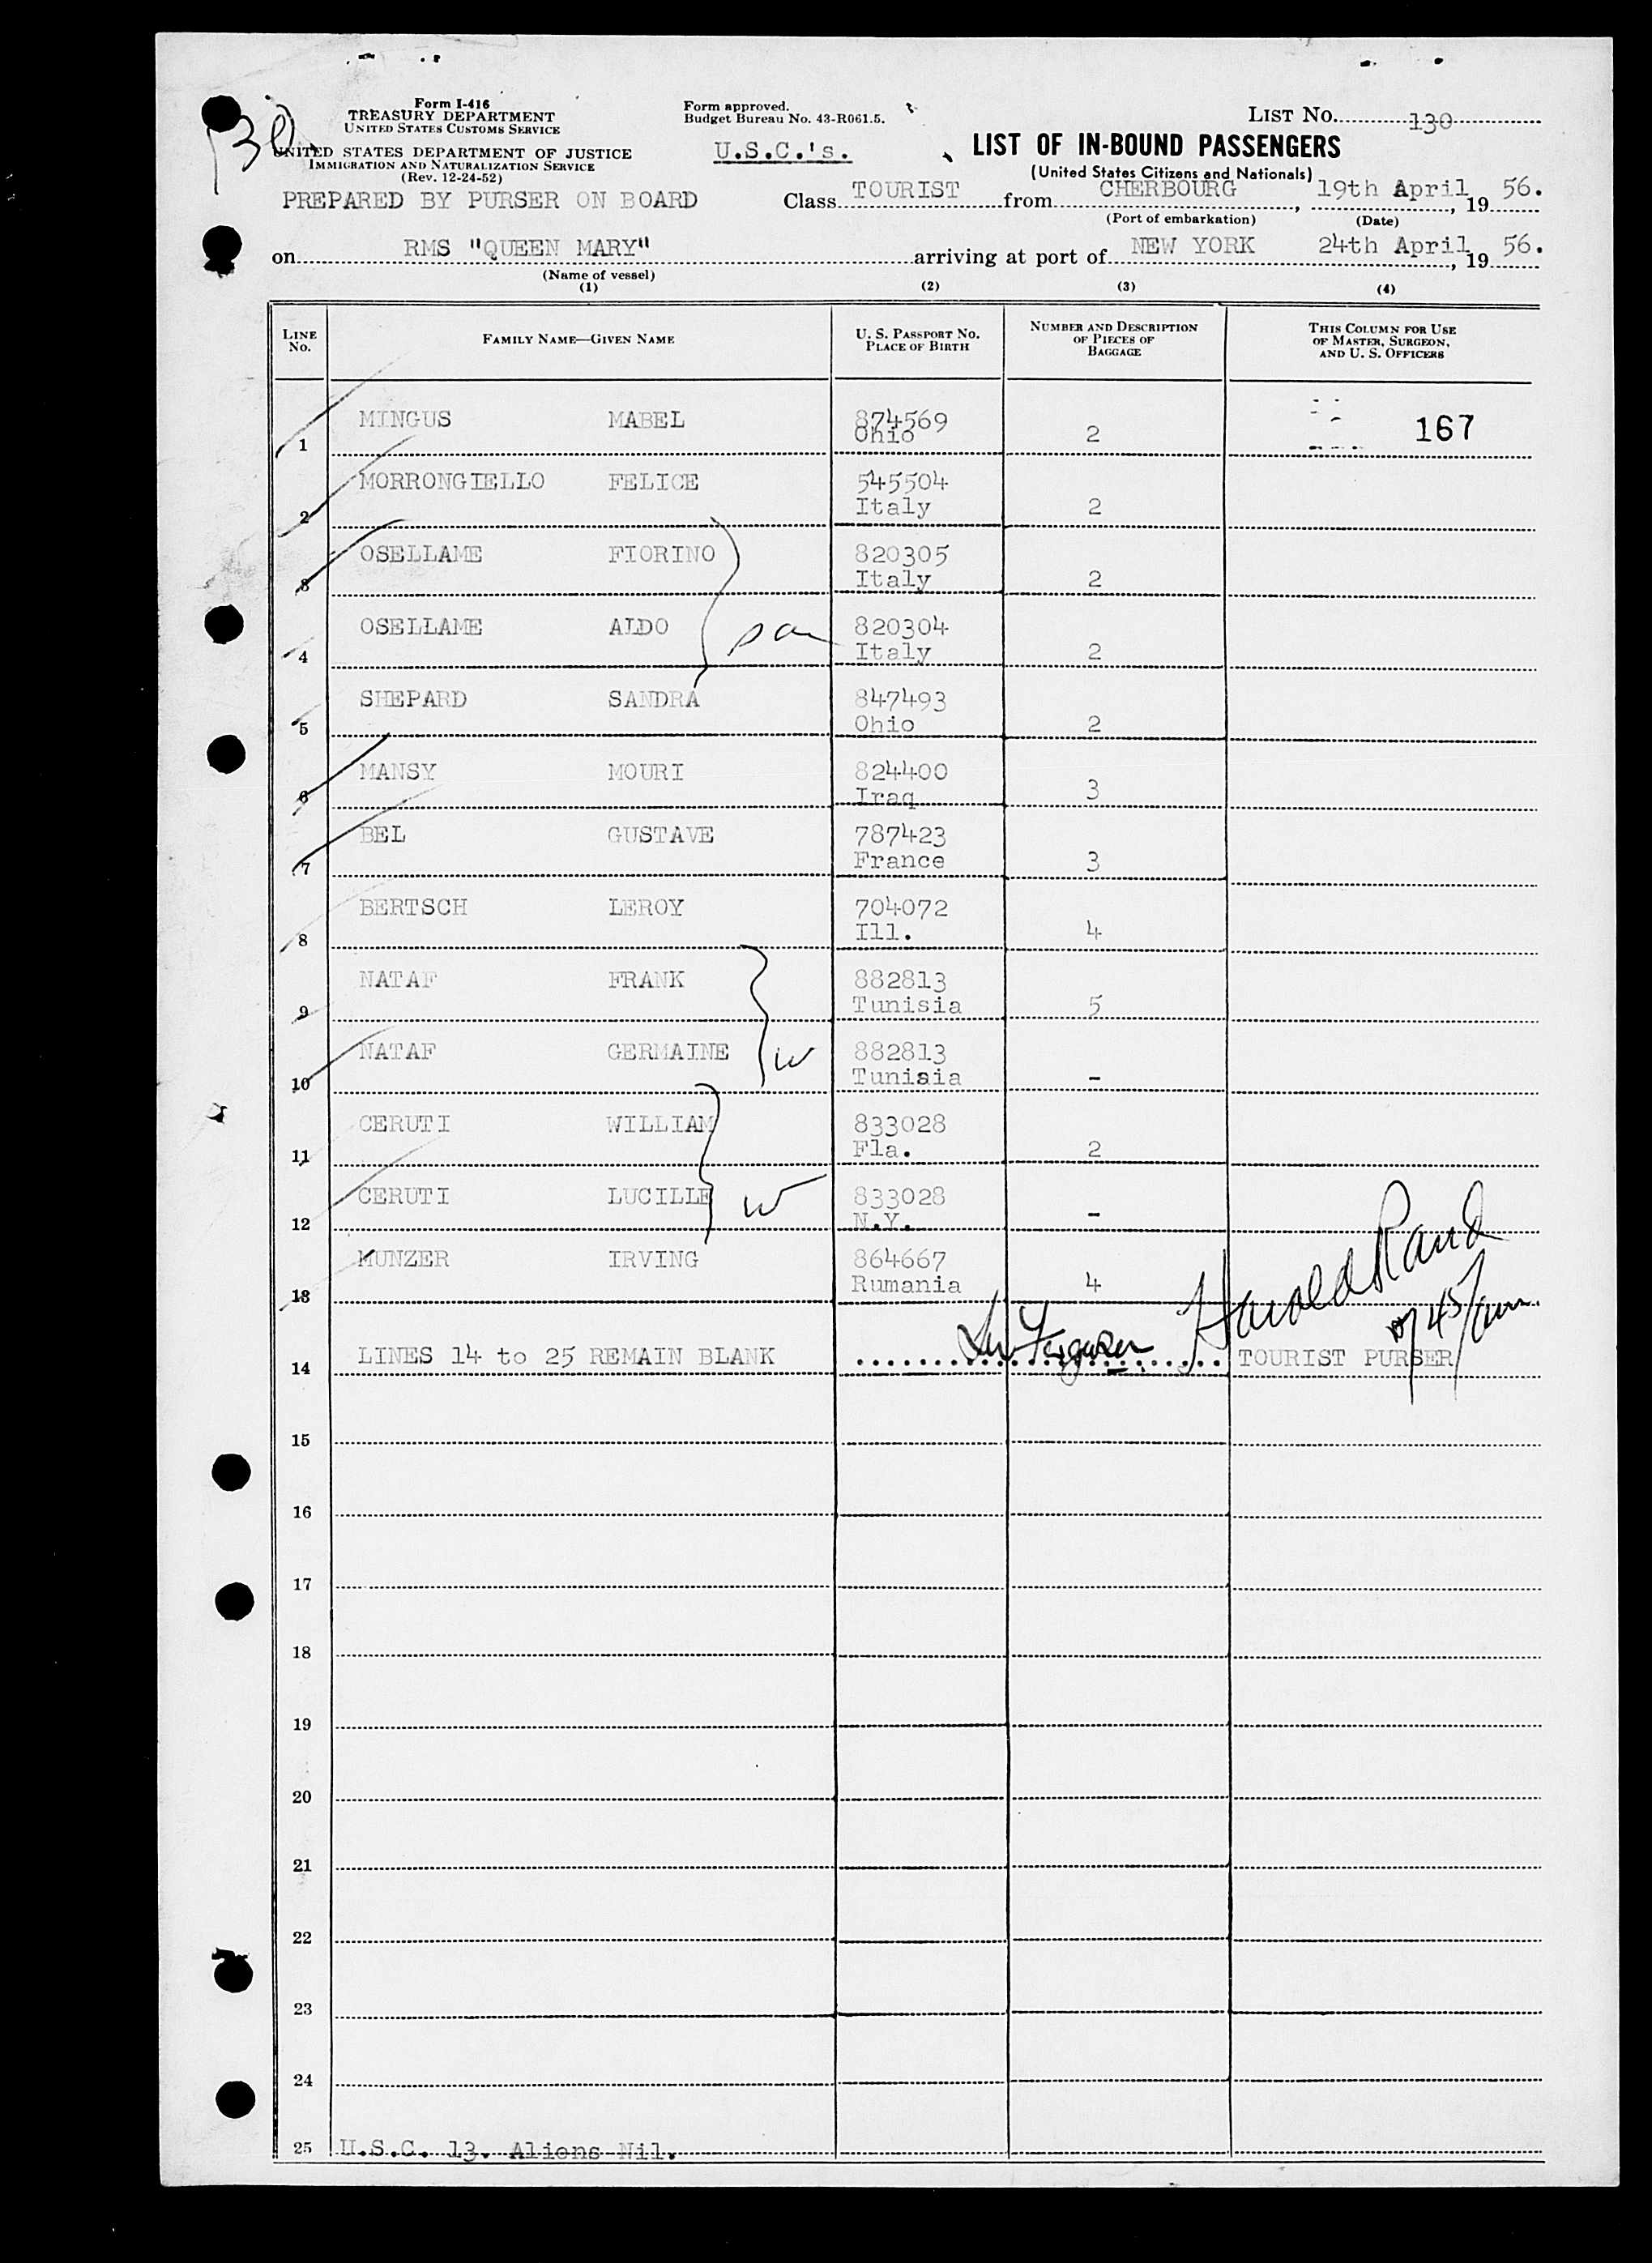 130
Form I-416
TREASURY DEPARTMENT
UNITED STATES CUSTOMS SERVICE
UNITED STATES DEPARTMENT OF JUSTICE
IMMIGRATION AND NATURALIZATION SERVICE
(Rev. 12-24-52)
Form approved.
Budget Bureau No. 43-R061.5.
U.S.C.'s.
LIST No. 130
LIST OF IN-BOUND PASSENGERS
(United States Citizens and Nationals)
PREPARED BY PURSER ON BOARD Class TOURIST from CHERBOURG, 19th April, 19 56.
(Port of embarkation) (Date)
on RMS "QUEEN MARY" arriving at port of NEW YORK 24th April, 19 56.
(Name of vessel)
(1) (2) (3) (4)
LINE No. FAMILY NAME—GIVEN NAME U. S. PASSPORT No. PLACE OF BIRTH NUMBER AND DESCRIPTION OF PIECES OF BAGGAGE THIS COLUMN FOR USE OF MASTER, SURGEON, AND U. S. OFFICERS
1 MINGUS MABEL 874569 Ohio 2 167
2 MORRONGIELLO FELICE 545504 Italy 2
3 OSELLAME FIORINO 820305 Italy 2
4 OSELLAME ALDO 820304 Italy 2
5 SHEPARD SANDRA 847493 Ohio 2
6 MANSY MOURI 824400 Iraq 3
7 BEL GUSTAVE 787423 France 3
8 BERTSCH LEROY 704072 Ill. 4
9 NATAF FRANK 882813 Tunisia 5
10 NATAF GERMAINE W 882813 Tunisia -
11 CERUTI WILLIAM 833028 Fla. 2
12 CERUTI LUCILLE W 833028 N.Y. -
13 MUNZER IRVING 864667 Rumania 4
Harold Rand
14 LINES 14 to 25 REMAIN BLANK Ferguson TOURIST PURSER
15
16
17
18
19
20
21
22
23
24
25 U.S.C. 13. Aliens Nil.